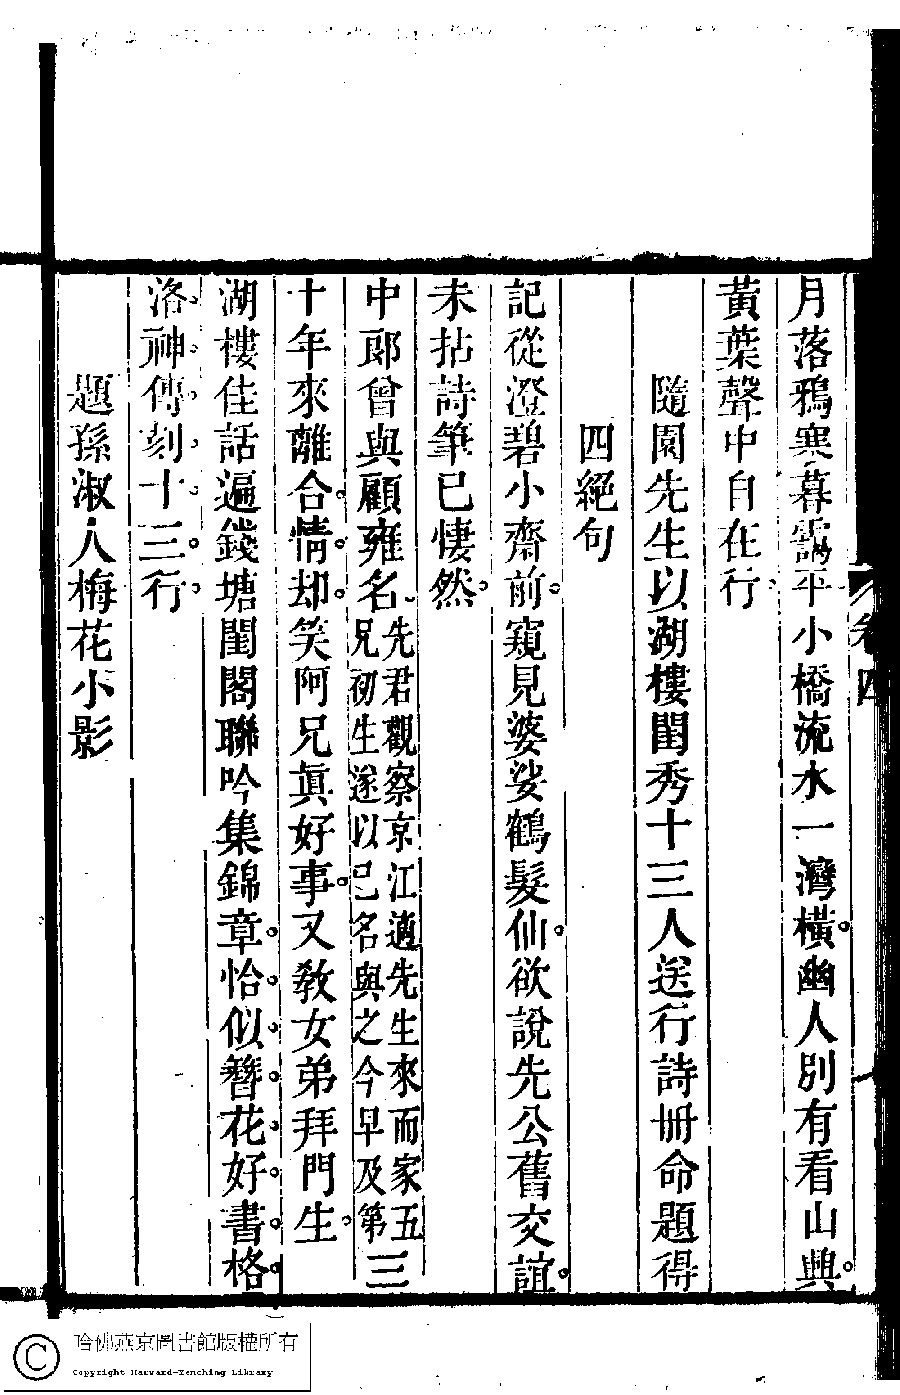 卷四
月落鴉寒暮靄平小橋流水一灣橫幽人別有看山興
黃葉聲中自在行
隨園先生以湖樓閨秀十三人送行詩冊命題得
四絕句
記從澄碧小齋前窺見婆娑鶴髮仙欲說先公舊交誼
未拈詩筆已悽然
中郎曾與顧雍名先君觀察京江適先生來而家五兄初生遂以已名與之今早及第三
十年來離合情却笑阿兄眞好事又教女弟拜門生
湖樓佳話遍錢塘閨閣聯吟集錦章恰似簪花好書格
洛神傳刻十三行
題孫淑人梅花小影
哈佛燕京圖書館版權所有
Copyright Harvard-Yenching Library